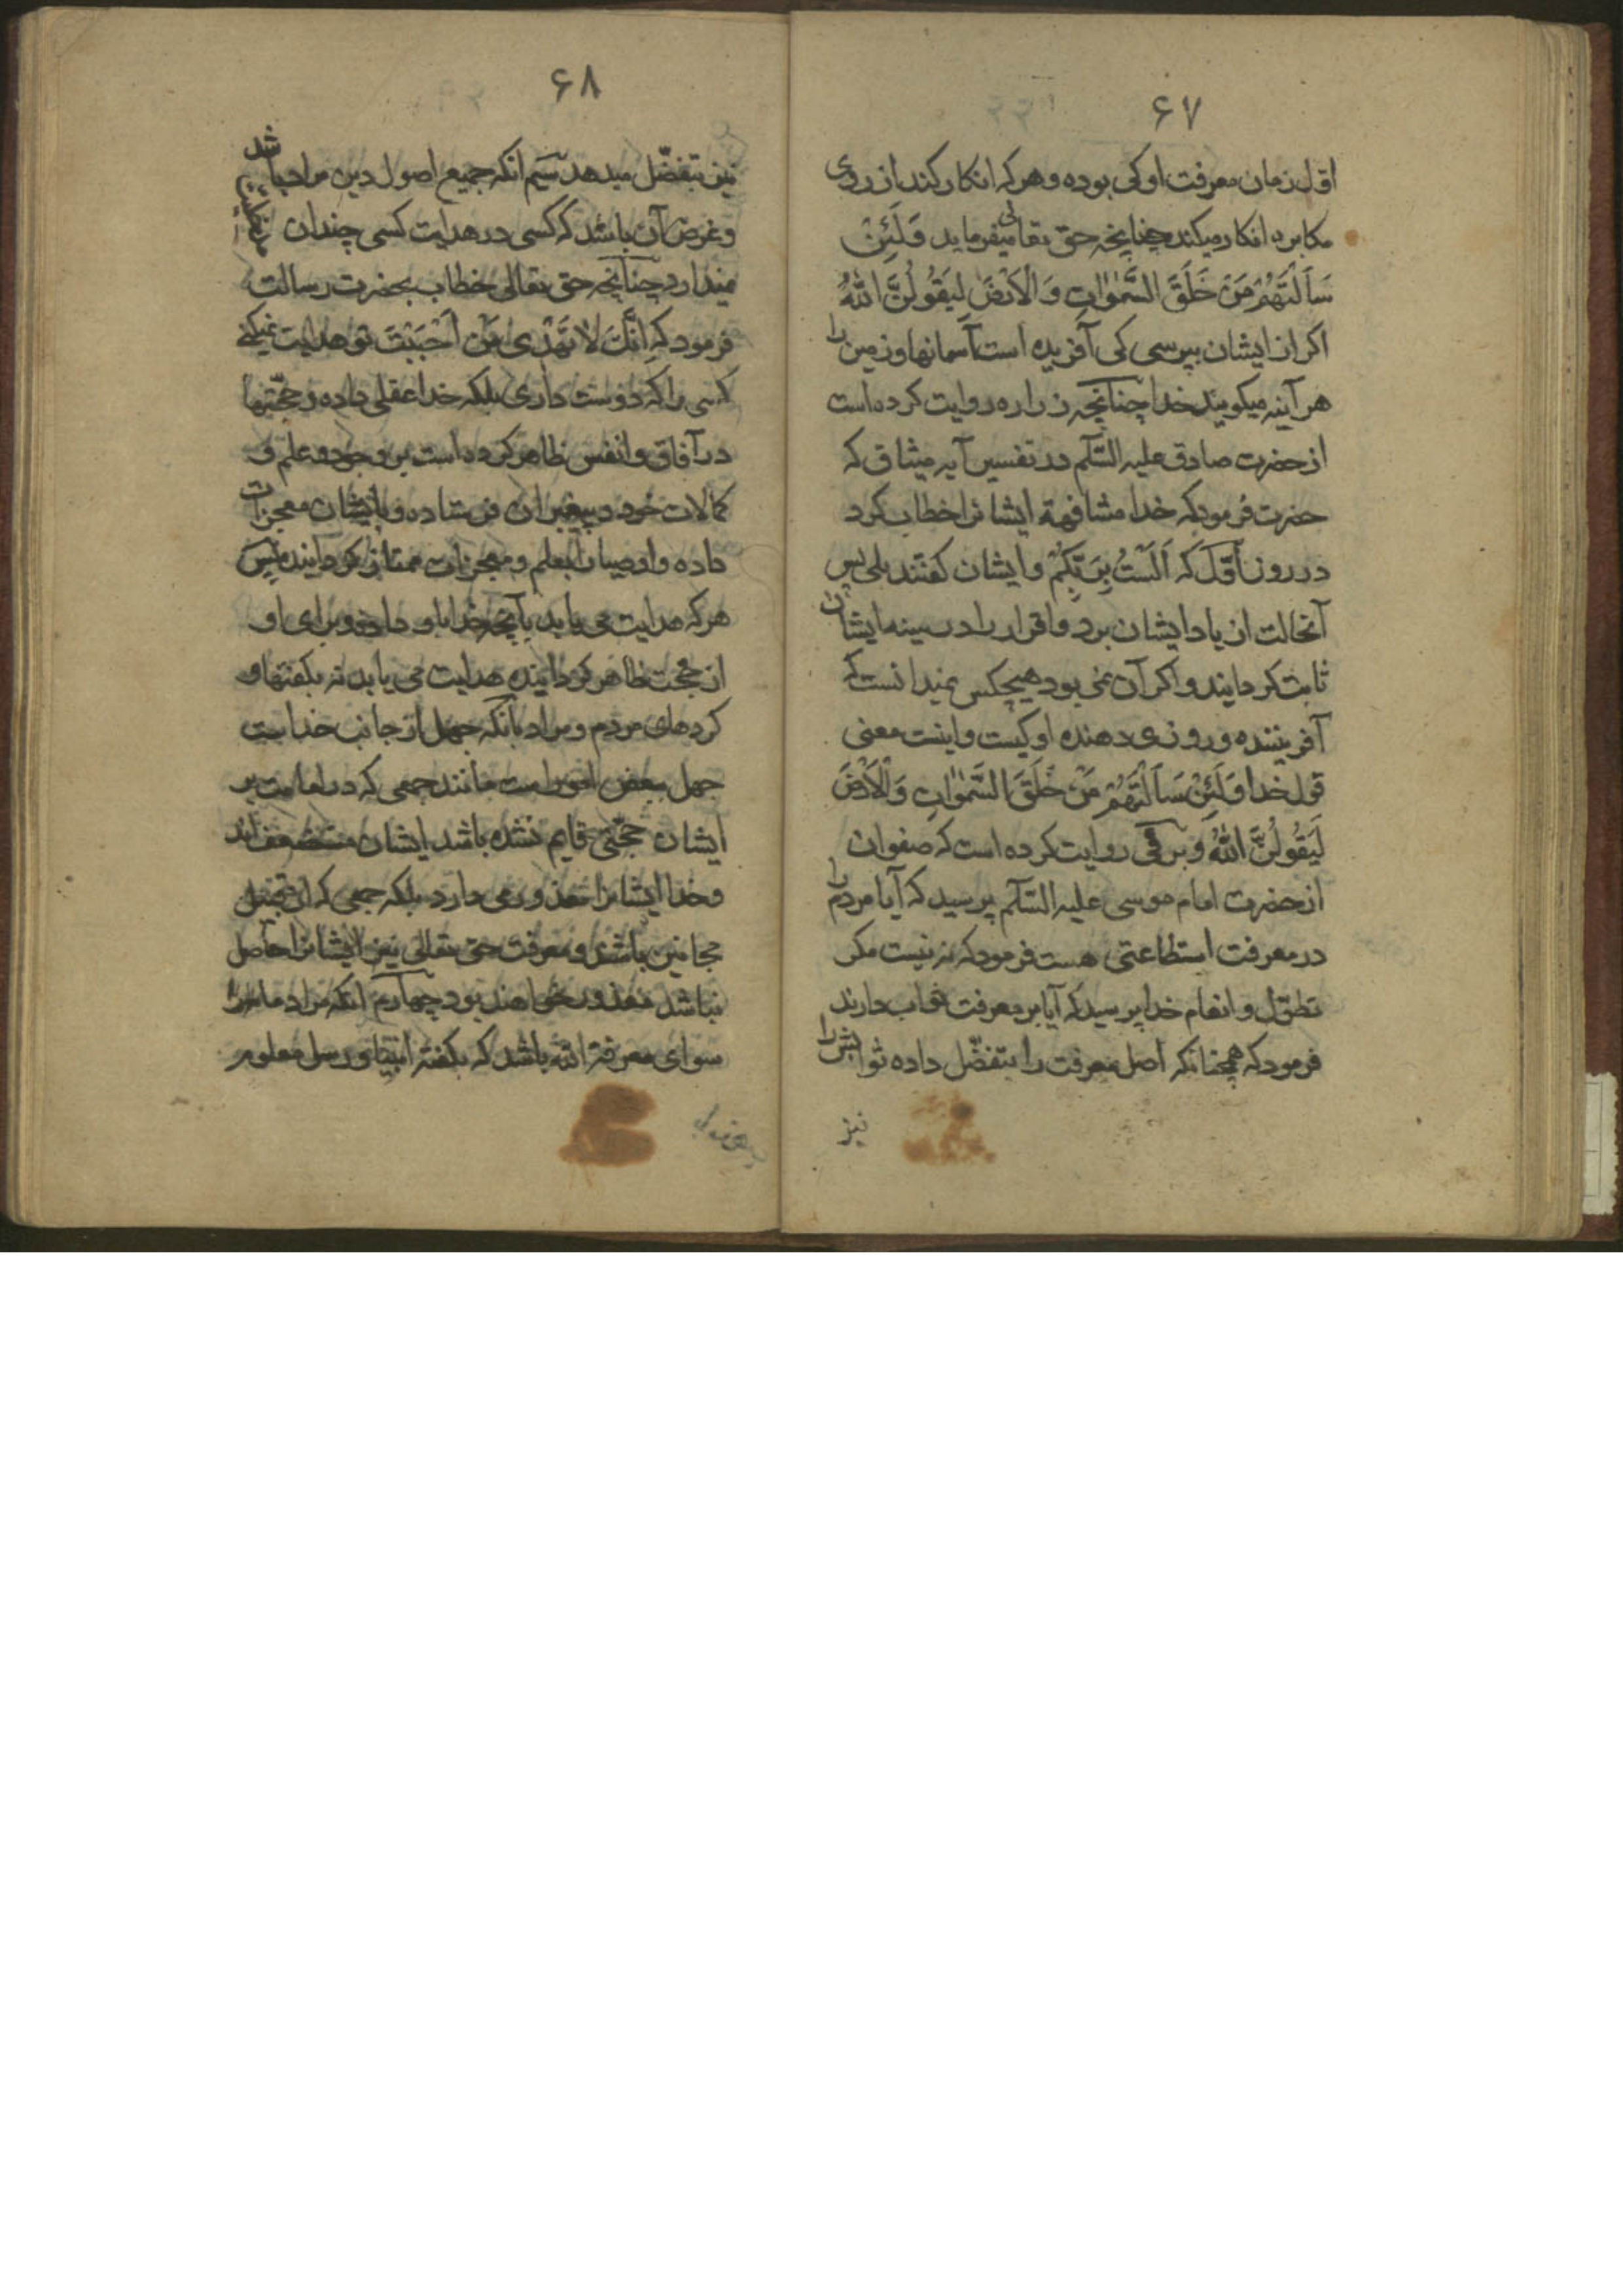 ۶۷
اول زمان معرفت او کی بوده و هر که انکار کند از روی
مکابره انکار میکند چنانچه حق تعالی میفرماید وَلَئِنْ
سَاَلْتَهُمْ مَنْ خَلَقَ السَّمٰوَاتِ وَالْاَرْضَ لَیَقُولُنَّ اللّٰهُ
اکر از ایشان بپرسی کی آفریده است آسمانها و زمین را
هر آینه میکویند خدا چنانچه زراره روایت کرده است
از حضرت صادق علیه السّلم در تفسیر آیه میثاق که
حضرت فرمود که خدا مشافهة ایشانرا خطاب کرد
در روز اوّل که اَلَسْتُ بِرَبِّکُمْ و ایشان کفتند بلی پس
آنحالت از یاد ایشان برد و اقرار را در سینه ایشان
ثابت کردانید و اکر آن نمی بود هیچکس نمیدانست که
آفریننده و روزی دهنده او کیست و اینست معنی
قول خدا وَلَئِنْ سَاَلْتَهُمْ مَنْ خَلَقَ السَّمٰوَاتِ وَالْاَرْضَ
لَیَقُولُنَّ اللّٰهُ و برقی روایت کرده است که صفوان
از حضرت امام موسی علیه السّلم پرسید که آیا مردم را
در معرفت استطاعتی هست فرمود که نه نیست مکر
تطوّل و انعام خدا پرسید که آیا بر معرفت ثواب دارند
فرمود که همچنانکه اصل معرفت را بتفضّل داده ثوابش را
نیز
۶۸
نیز بتفضّل میدهد سیم انکه جمیع اصول دین مراد باشد
و غرض آن باشد که کسی در هدایت کسی چندان
نمیدارد چنانچه حق تعالی خطاب بحضرت رسالت
فرمود که اِنَّکَ لَا تَهْدِی مَنْ اَحْبَبْتَ تو هدایت نمیکنی
کسی را که دوست داری بلکه خدا عقلی داده و حجّتها
در آفاق و انفس ظاهر کرده است بر وجود و علم و
کمالات خود و پیغمبران فرستاده و بایشان معجزات
داده و اوصیا را بعلم و معجزات ممتاز کردانیده پس
هر که هدایت می یابد بآنچه خدا باو داده و برای او
از حجت ظاهر کردانیده هدایت می یابد نه بکفتها و
کردهای مردم و مراد بانکه جهل از جانب خداست
جهل بعض امور است مانند جمعی که در امامت بر
ایشان حجّتی قایم نشده باشد ایشان مستضعف اند
و خدا ایشانرا معذور می دارد بلکه جمعی که از قبیل
مجانین باشند و معرفت حق تعالی نیز ایشانرا حاصل
نباشد معذور خواهند بود چهارم انکه مراد ما
سوای معرفة الله باشد که بکفته انبیا و رسل معلوم